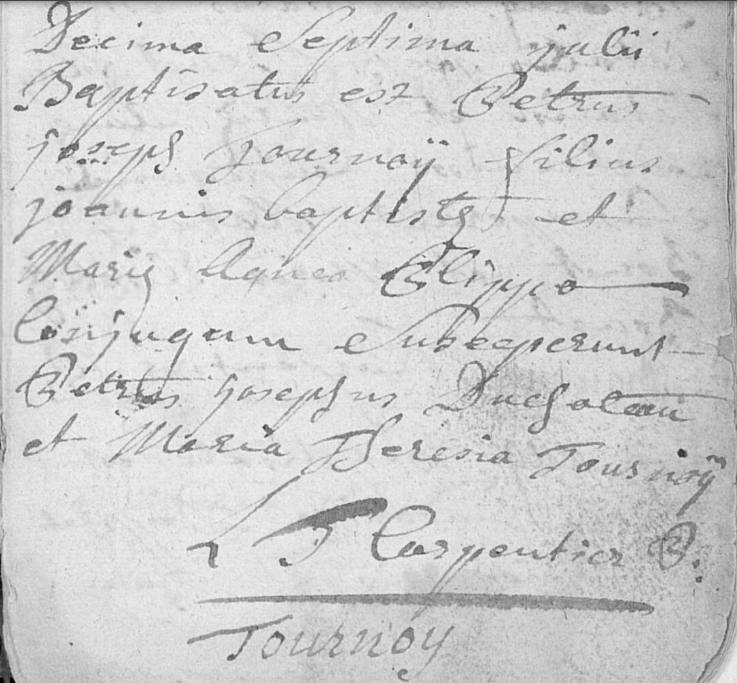 Decima Septima julii
Baptisatus est Petrus
joseph Tournoÿ filius
joannis baptistę et
Marię Agnes Clippo
Conjugum Susceperunt
Petrus josephus Duchateau
et Maria Theresia Tournoÿ
Carpentier P.
Tournoy